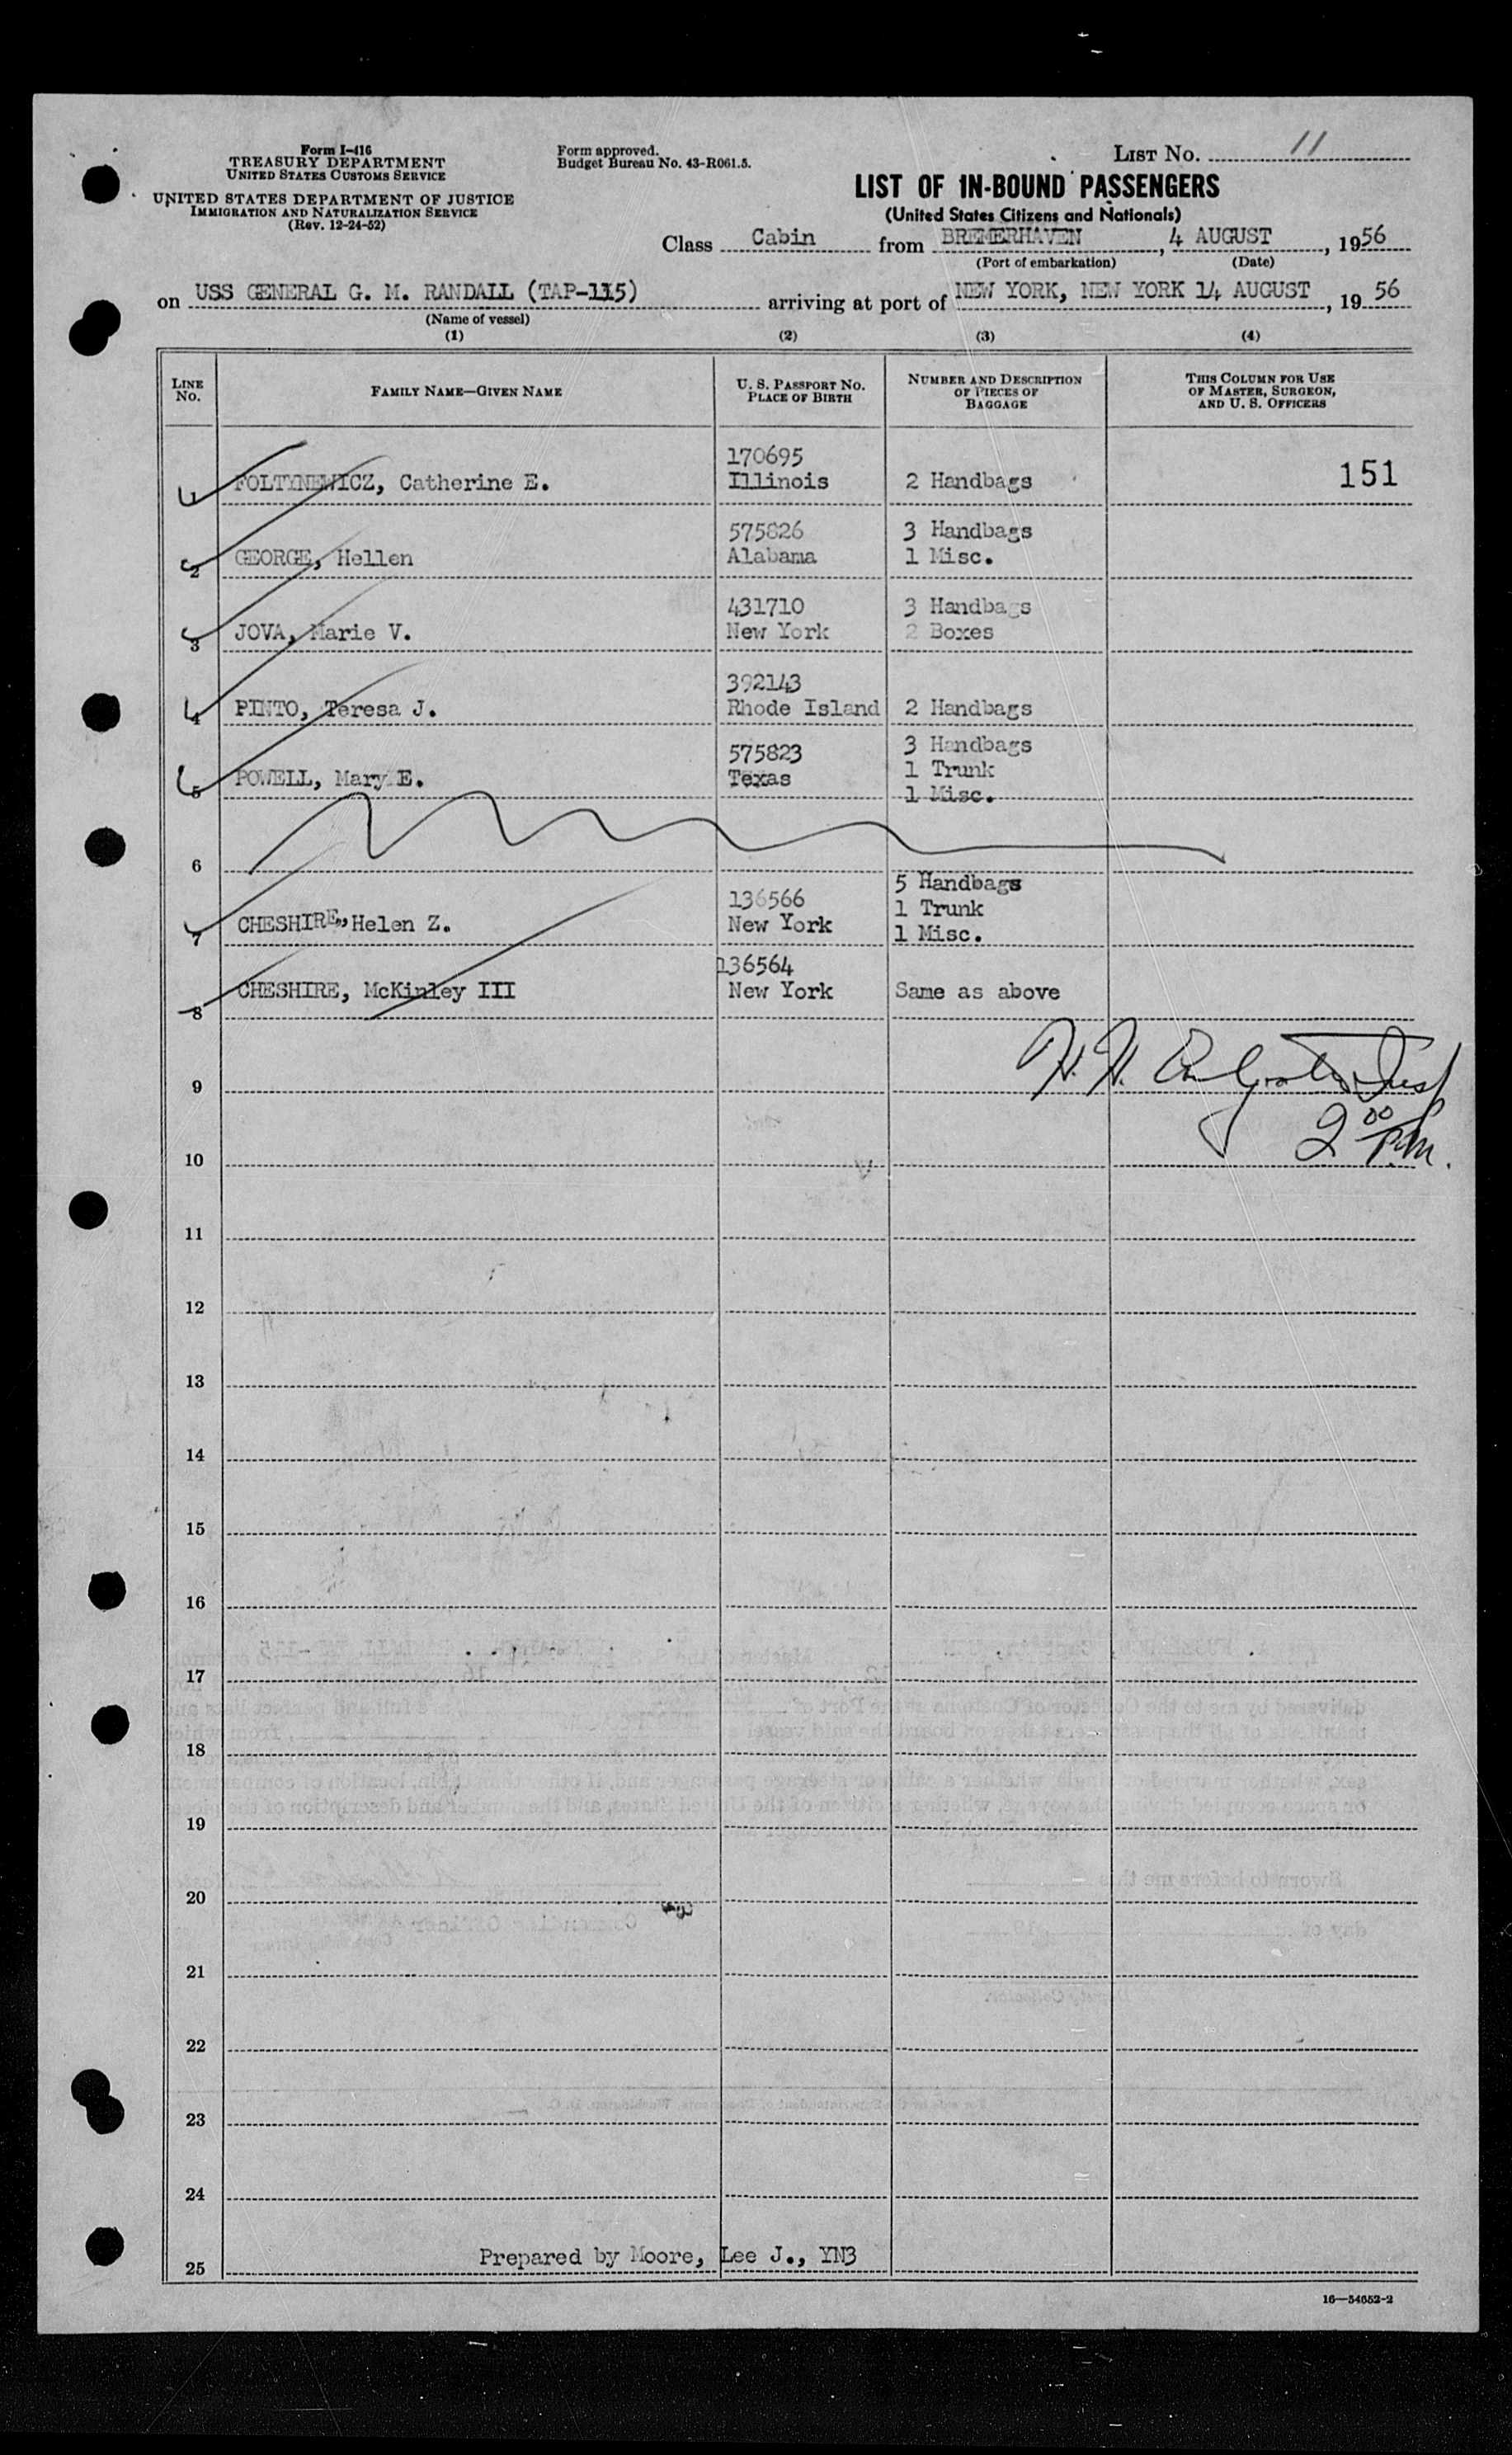 Form I-416
TREASURY DEPARTMENT
UNITED STATES CUSTOMS SERVICE
UNITED STATES DEPARTMENT OF JUSTICE
IMMIGRATION AND NATURALIZATION SERVICE
(Rev. 12-24-52)
Form approved.
Budget Bureau No. 43-R061.5.
LIST NO. 11
LIST OF IN-BOUND PASSENGERS
(United States Citizens and Nationals)
Class Cabin from BREMERHAVEN, 4 AUGUST, 1956
(Port of embarkation) (Date)
on USS GENERAL G. M. RANDALL (TAP-115) arriving at port of NEW YORK, NEW YORK 14 AUGUST, 1956
(Name of vessel)
(1) (2) (3) (4)
LINE NO.
FAMILY NAME—GIVEN NAME
U. S. PASSPORT NO.
PLACE OF BIRTH
NUMBER AND DESCRIPTION
OF PIECES OF
BAGGAGE
THIS COLUMN FOR USE
OF MASTER, SURGEON,
AND U. S. OFFICERS
170695
1 FOLTYNEWICZ, Catherine E. Illinois 2 Handbags 151
575826 3 Handbags
2 GEORGE, Hellen Alabama 1 Misc.
431710 3 Handbags
3 JOVA, Marie V. New York 2 Boxes
392143
4 PINTO, Teresa J. Rhode Island 2 Handbags
575823 3 Handbags
5 POWELL, Mary E. Texas 1 Trunk
1 Misc.
6
136566 5 Handbags
1 Trunk
7 CHESHIRE, Helen Z. New York 1 Misc.
136564
8 CHESHIRE, McKinley III New York Same as above
9 H. H.
2 00 P.M.
10
11
12
13
14
15
16
17
18
19
20
21
22
23
24
25 Prepared by Moore, Lee J., YN3
16—54652-2